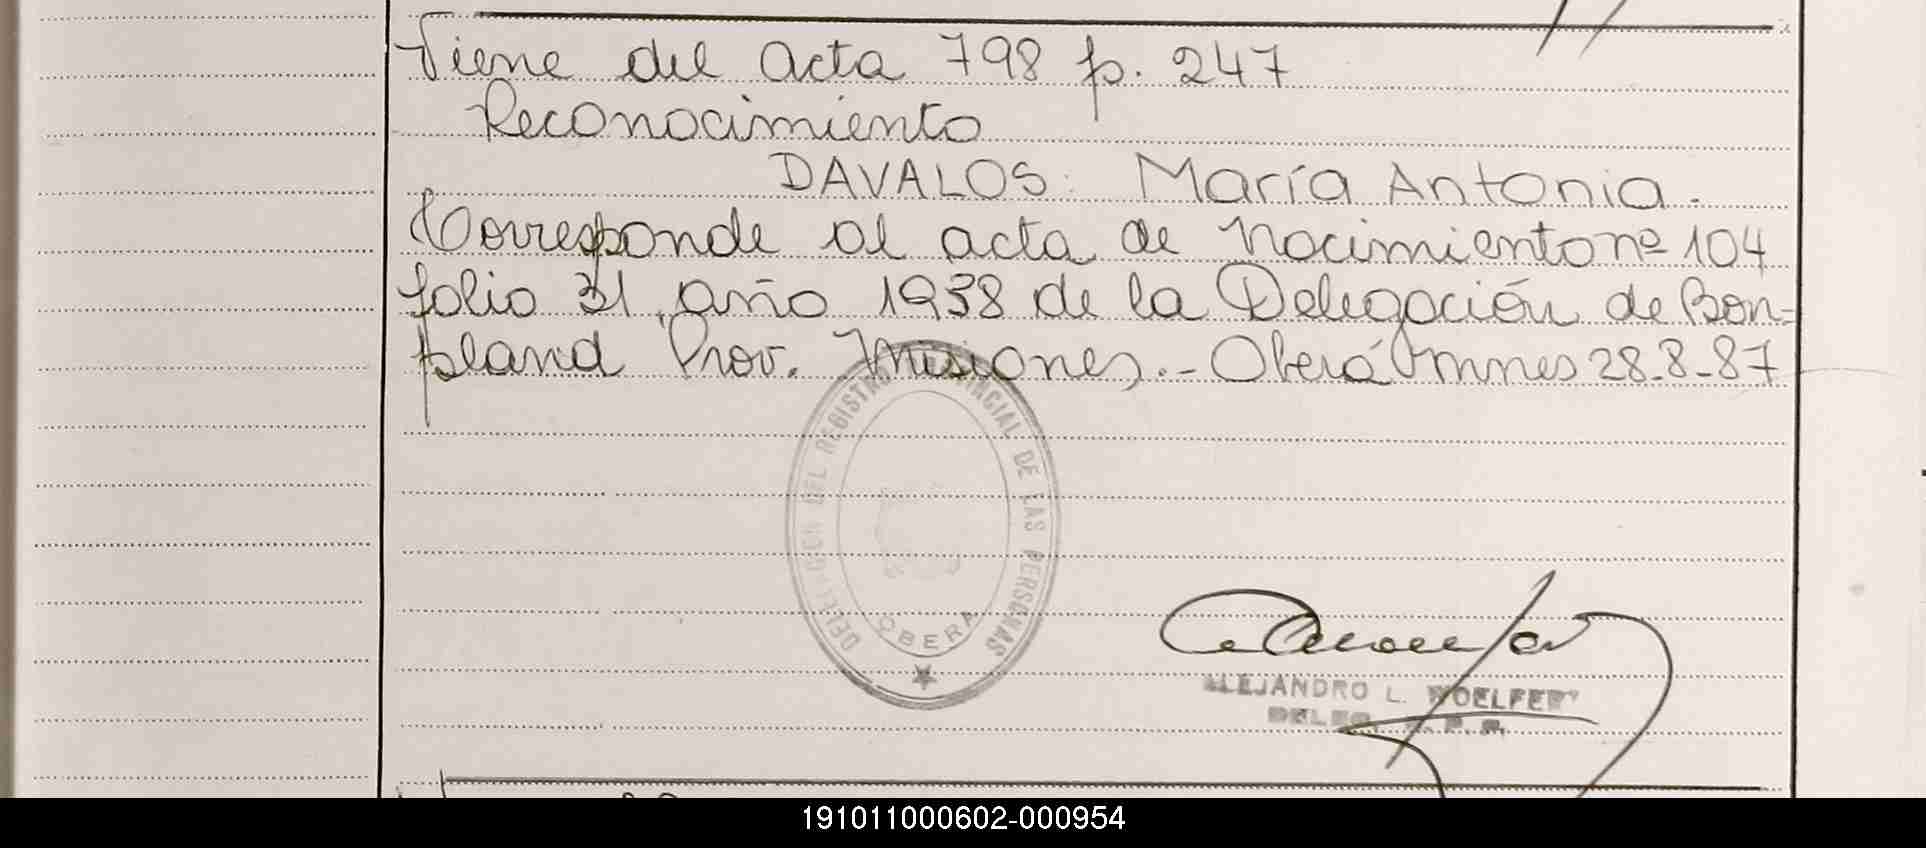 Viene del acta 798 p. 247
Reconocimiento
DAVALOS: María Antonia.
Corresponde al acta de nacimiento nº 104
folio 31, año 1938 de la Delegación de Bon=
pland Prov. Misiones.- Oberá Mnes 28-8-87
DELEGACION DEL REGISTRO PROVINCIAL DE LAS PERSONAS
OBERA
ALEJANDRO L. WOELFER
DELEG. R. P. P.
191011000602-000954